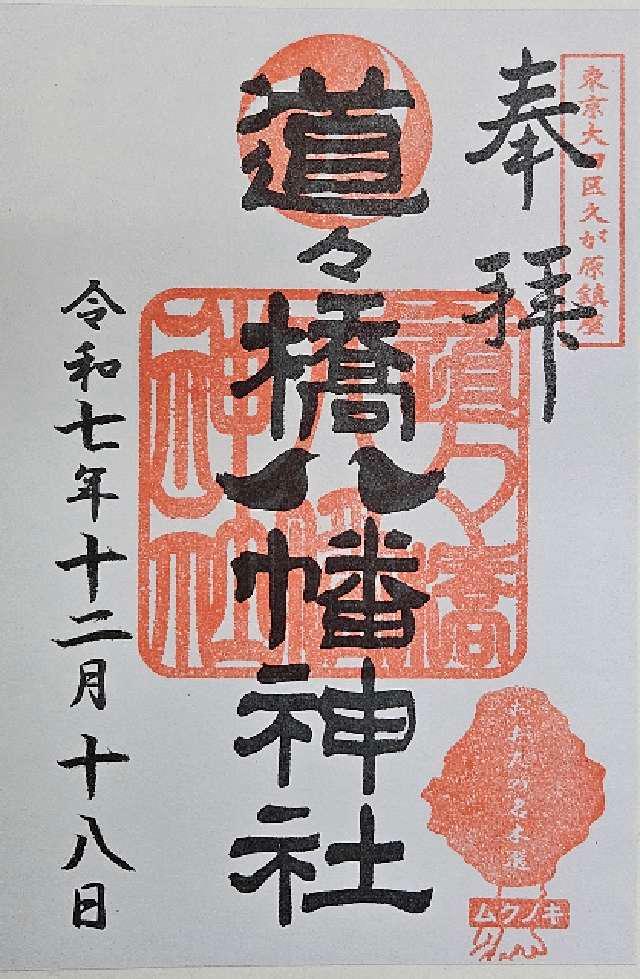 東京大田区久が原鎮座
奉拝
道々橋八幡神社
道々橋
八幡
神社
令和七年十二月十八日
おおたの名木選
ムクノキ